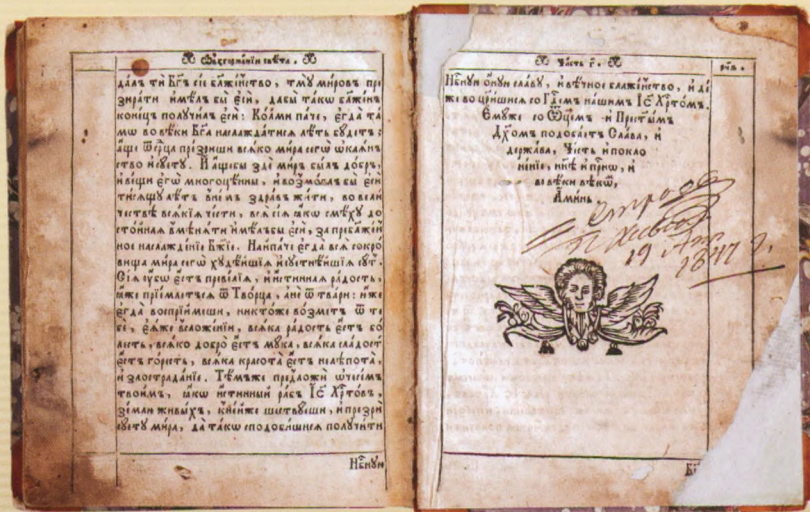 Ѡ҆ ᲂу҆се́рднїи свѣ́та.
да́лъ тѝ Бг҃ъ сїѐ бл҃же́нство, тмꙋ̀ мі́ровъ пре
зира́ти и҆мѣ́лъ бы є҆сѝ, дабы̀ та́кѡ бл҃же́нъ
коне́цъ полꙋчи́лъ є҆сѝ: Ко́лми па́че, є҆гда̀ та́
мѡ во вѣ́ки Бг҃а наслажда́тисѧ лѣ́ть бꙋ́детъ:
а҆́ще ѿ се́рца пре́зриши всѧ́ко мі́ра сегѡ̀ ѡ҆каѧ́н
ство и҆ сꙋетꙋ̀. И҆ а҆́ще бы здѐ мі́ръ бы́лъ до́бръ,
и҆ ве́щи є҆гѡ̀ многоцѣ́нны, и҆ возмо́глъ бы є҆сѝ
ти́сѧщꙋ лѣ́тъ в не́мъ здра́въ жи́ти, во вели́
чествѣ всѧ́кїѧ че́сти, всѧ̑ сїѧ̑ ꙗ҆́кѡ смѣ́хꙋ до
сто́йнаѧ вмѣни́ти и҆мѣ́лъ бы є҆сѝ, за пребл҃же́н
ное наслажде́нїе Бж҃їе. Наипа́че є҆гда̀ всѧ̑ сокро́
вища мі́ра сегѡ̀ хꙋдѣ́йшїѧ и҆ сꙋетнѣ́йшїѧ сꙋ́ть.
Сїѧ̀ ᲂу҆́бѡ є҆́сть превели́ѧ, и҆ и҆́стиннаѧ ра́дость,
ꙗ҆́же прїе́млетсѧ ѿ Творца̀, а҆ не ѿ тва́ри: ю҆́же
є҆гда̀ воспрїи́меши, никто́же во́зметъ ѿ те
бѐ, є҆ѧ́же всложе́нїи, всѧ́ка ра́дость є҆́сть бо
лѣ́сть, всѧ́ко добро̀ є҆́сть мꙋ́ка, всѧ́ка сла́дость
є҆́сть го́ресть, всѧ́ка красота̀ є҆́сть нелѣ́пота,
и҆ злострада́нїе. Тѣ́мъже предложѝ ѻ҆чесе́мъ
твои́мъ, ꙗ҆́кѡ и҆́стинный ра́бъ І҆с҃ Хрт҇о́въ,
зе́млю живы́хъ, к не́йже ше́ствꙋеши, и҆ пре́зри
сꙋетꙋ̀ мі́ра, да та́кѡ сподоби́шисѧ полꙋчи́ти
Нбⷭ҇нꙋю
Ча́сть г҃.
Нбⷭ҇нꙋю ѻ҆́нꙋю сла́вꙋ, и҆ вѣ́чное блаже́нство, и҆ дѣ́
же воцр҃и́шисѧ со Гдⷭ҇емъ на́шимъ І҆с҃ Хрⷭ҇то́мъ.
Є҆мꙋ́же со Ѻ҆ц҃е́мъ и҆ Прест҃ы́мъ
Дх҃омъ подоба́етъ Сла́ва, и҆
держа́ва, Че́сть и҆ покло
не́нїе, нн҃ѣ и҆ при́снѡ, и҆
во вѣ́ки вѣкѡ́въ,
А҆ми́нь.
19
1847 г.